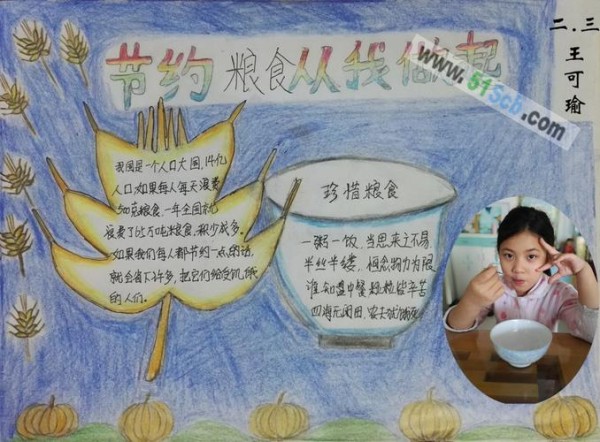 节约粮食从我做起
www.51Scb.com
二.三
王可瑜
我国是一个人口大国,14亿
人口,如果每人每天浪费
粮食,一年全国就
浪费了万吨粮食,积少成多。
如果我们每人都节约一点的话,
就会省下许多,把它们给受饥饿
的人们。
珍惜粮食
一粥一饭,当思来之不易
半丝半缕,恒念物力
谁知盘中餐 粒粒皆辛苦
四海无闲田,农夫犹饿死